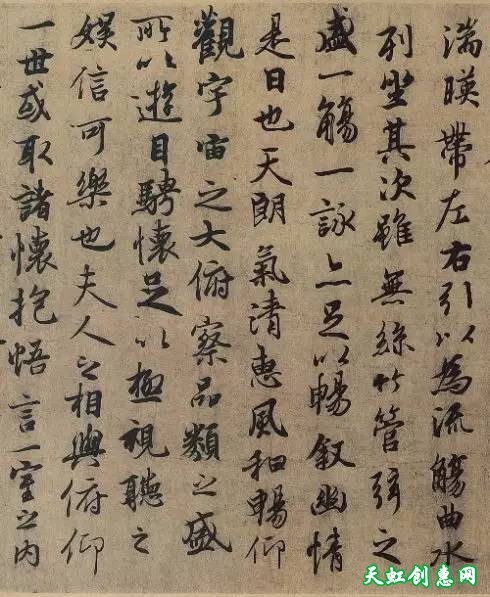 湍暎帶左右引以為流觴曲水
列坐其次雖無絲竹管弦之
盛一觴一詠亦足以暢叙幽情
是日也天朗氣清惠風和暢仰
觀宇宙之大俯察品類之盛
所以遊目騁懷足以極視聽之
娛信可樂也夫人之相與俯仰
一世或取諸懷抱悟言一室之內
天虹创惠网